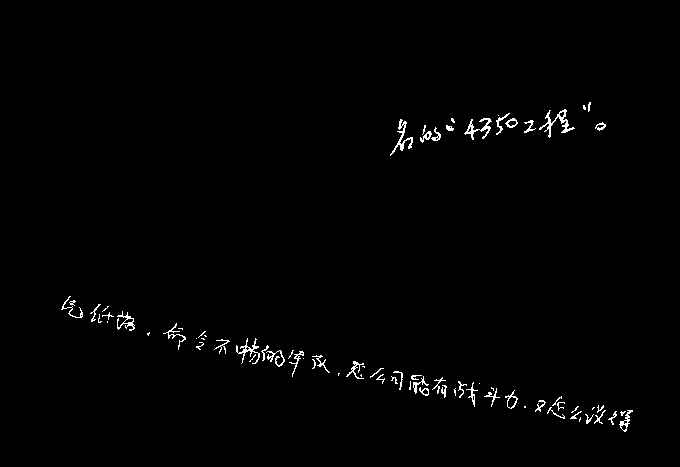 名的“4350工程”。
气低落，命令不畅的军队，怎么可能有战斗力，又怎么谈得